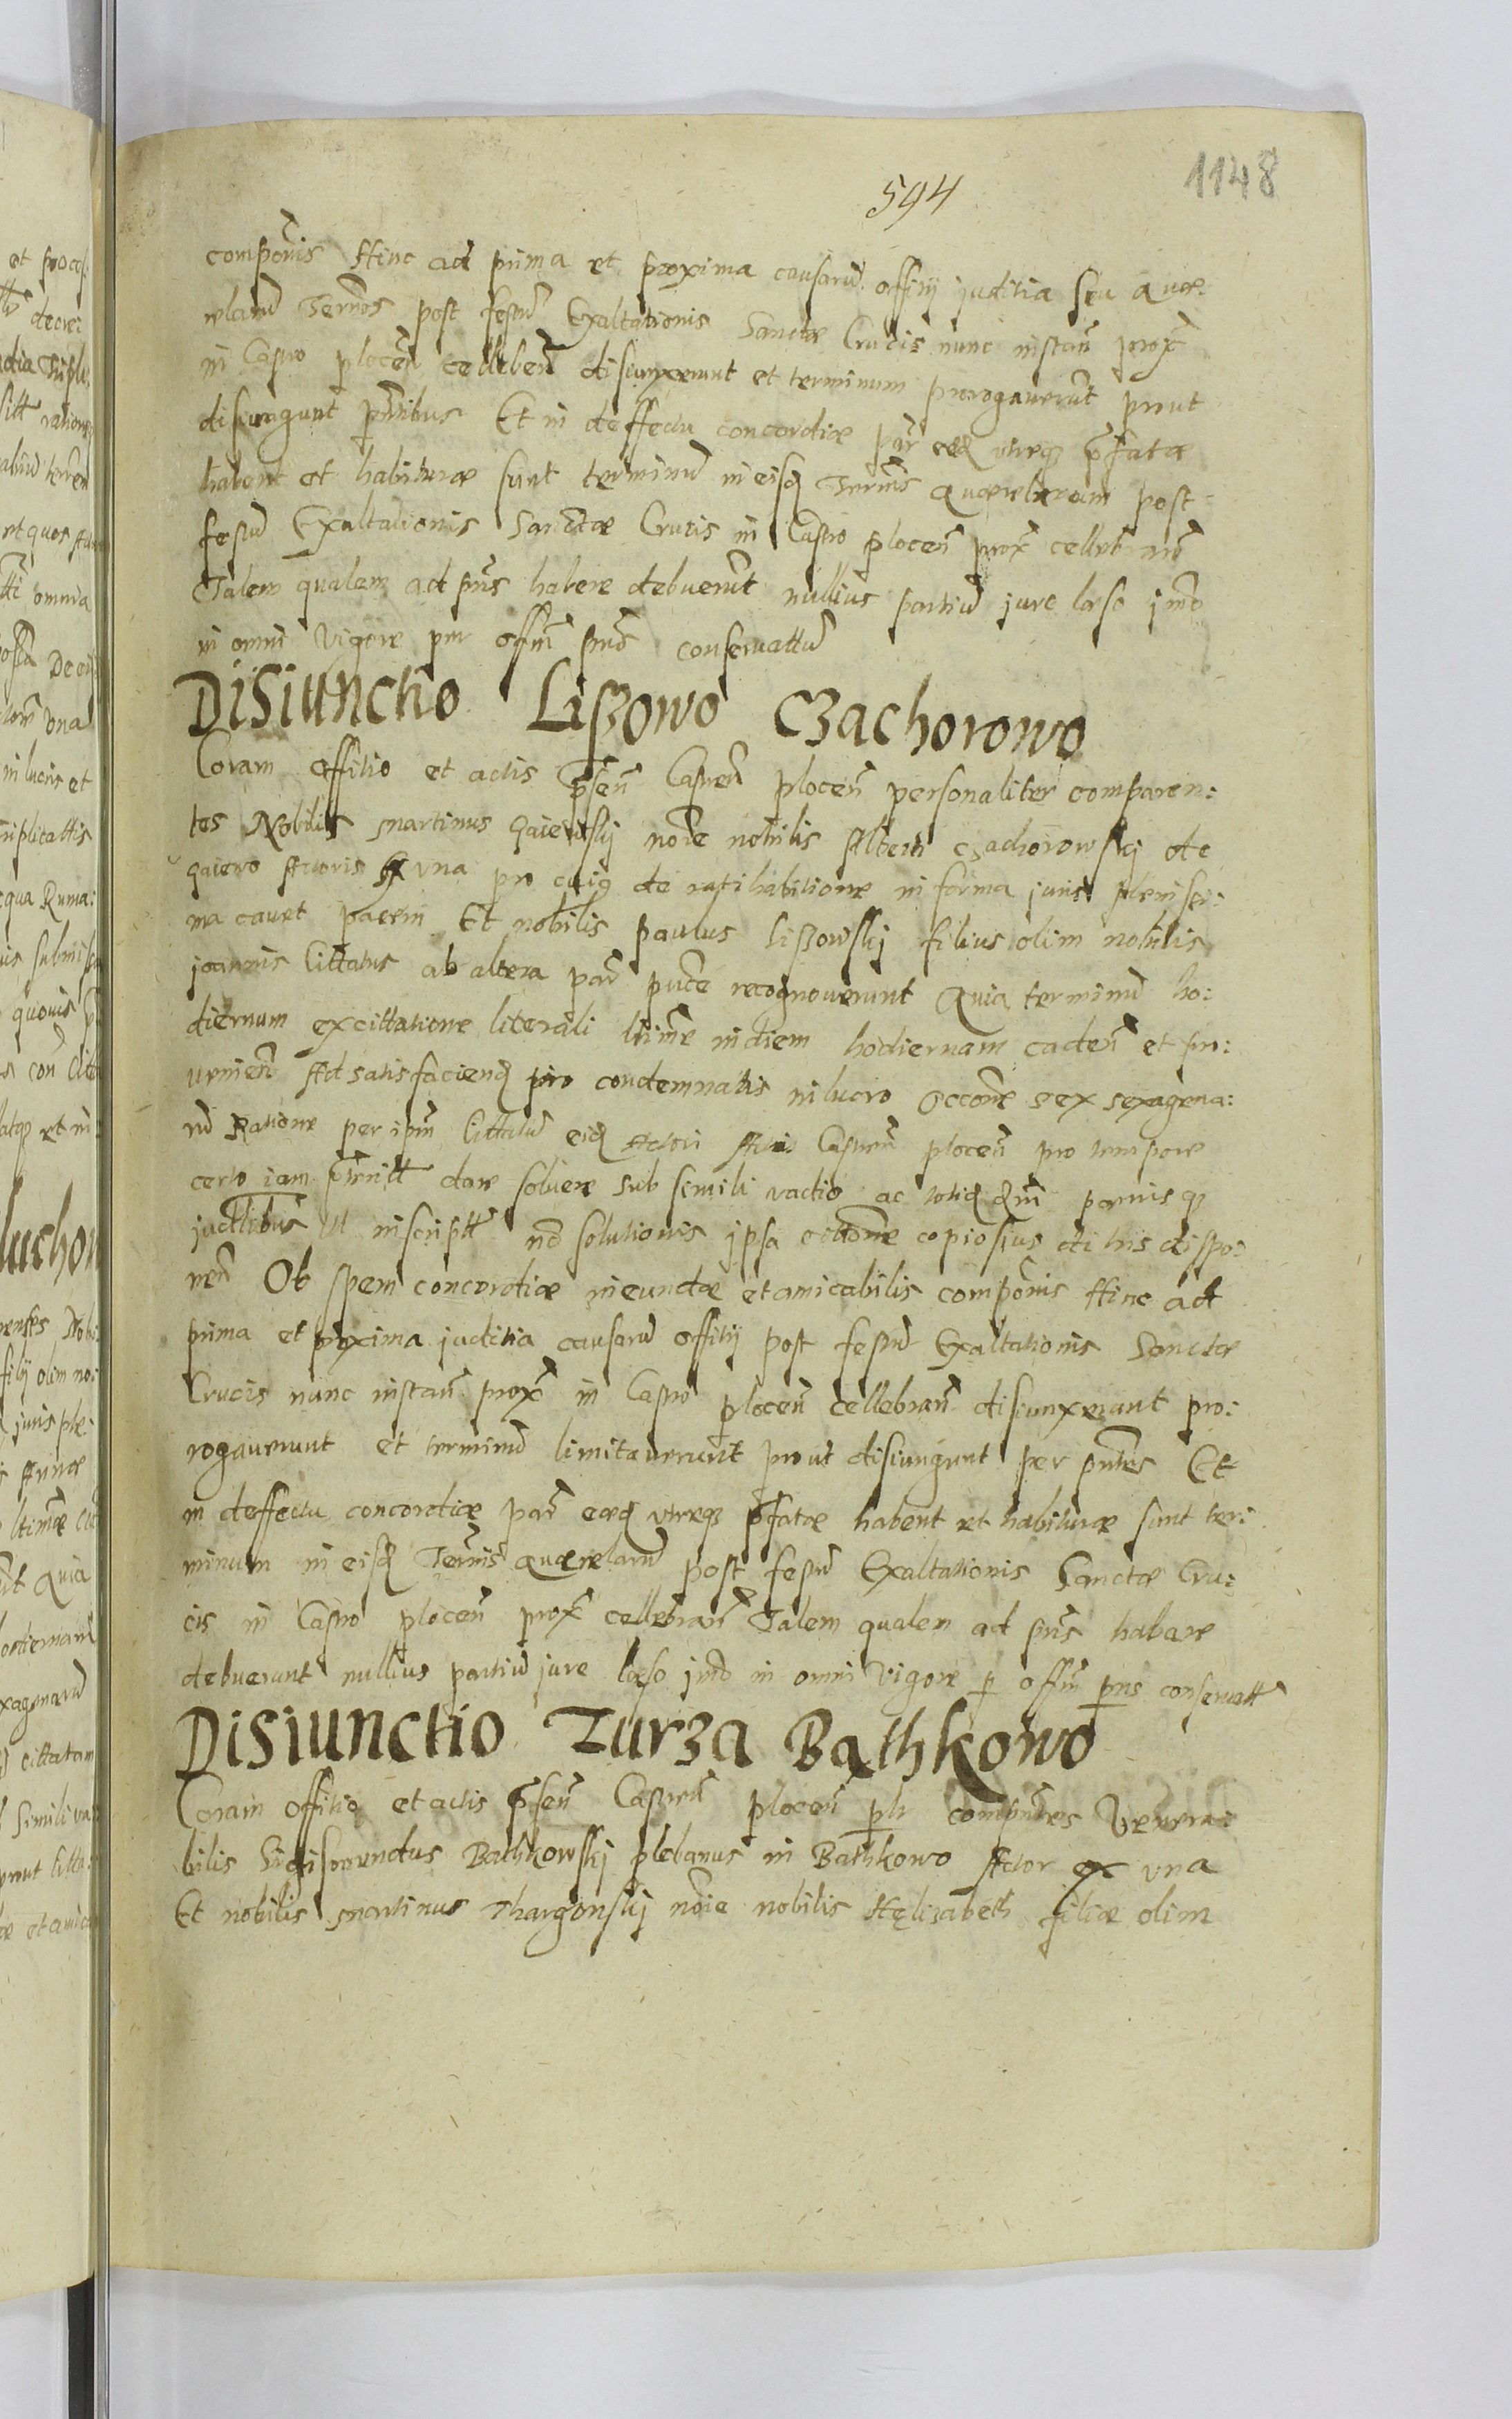 594
1148
componis Hinc ad prima et proxima causarū offitij juditia seu quæ:
relarū Termōs post festū Exaltationis Sanctæ Crucis nunc instañ prox̃
in Castro plocen̄ cellebrañ disiunxerunt et terminum prorogaverūt prout
disiungunt pñtibus Et in deffectu concordiæ par̃ eæd utreq3 pfatæ
habent et habituræ sunt terminū in eisd Termīs quærelarum post
festū Exaltationis Sanctæ Crucis in Castro plocen̄ prox̃ cellebrañ
Talem qualem ad pñs habere debuerūt nullius partiū jure læso jmo
in omni vigore per offm̄ pñs conservattū
Disiunctio Liszowo Czachorowo
Coram offitio et actis p̄sen̄ Castren̄ plocen̄ personaliter comparen:
tes Nobilis Martinus Gaiewskj noīe nobilis Alberti Czachorowskj de
Gaiewo Actoris ex una pro cuiq3 de ratihabitione in forma juris plenissi:
ma cavet parem Et nobilis Paulus Liszowskj filius olim nobilis
joannis Cittatus ab altera par̃ pucte recognoverunt Quia terminū ho:
diernum ex cittatione literali ltime in diem hodiernam caden̄ et pro:
venien̄ Ad satisfaciend pro condemnatis in lucro occone sex sexagena:
rū Ratione per ipm̄ Cittatū eid Actori Actis Castren̄ plocen̄ pro tempore
certo iam p̄terit̄ dare solvere sub simili vadio ac totid dm̄ pænisq3
judtlibus ut inscriptt nō solutionis ipsa cittone copiosius de his dispo:
nen̄ Ob spem concordiæ ineundæ et amicabilis componis Hinc ad
prima et proxima juditia causarū offitij post festū Exaltationis Sanctæ
Crucis nunc instañ prox̃ in Castro plocen̄ cellebrañ disiunxerunt pro:
rogaverunt et terminū limitaverunt prout disiungunt per pñtes Et
in deffectu concordiæ par̃ eæd utreq3 pfatæ habent et habituræ sunt ter:
minum in eisd Termīs quærelarū post festū Exaltationis Sanctæ Cru:
cis in Castro plocen̄ prox̃ cellebrañ Talem qualem ad pñs habare
debuerunt nullius partiū jure læso jmo in omni vigore p offm̄ pñs conservatt
Disiunctio Turza Bathkowo
Coram offitio et actis p̄sen̄ Castren̄ plocen̄ plr compñtes Venera:
bilis Sigismundus Bathkowskj plebanus in Bathkowo Actor ex una
Et nobilis Martinus Thargonskj noīe nobilis Helizabeth filiæ olim